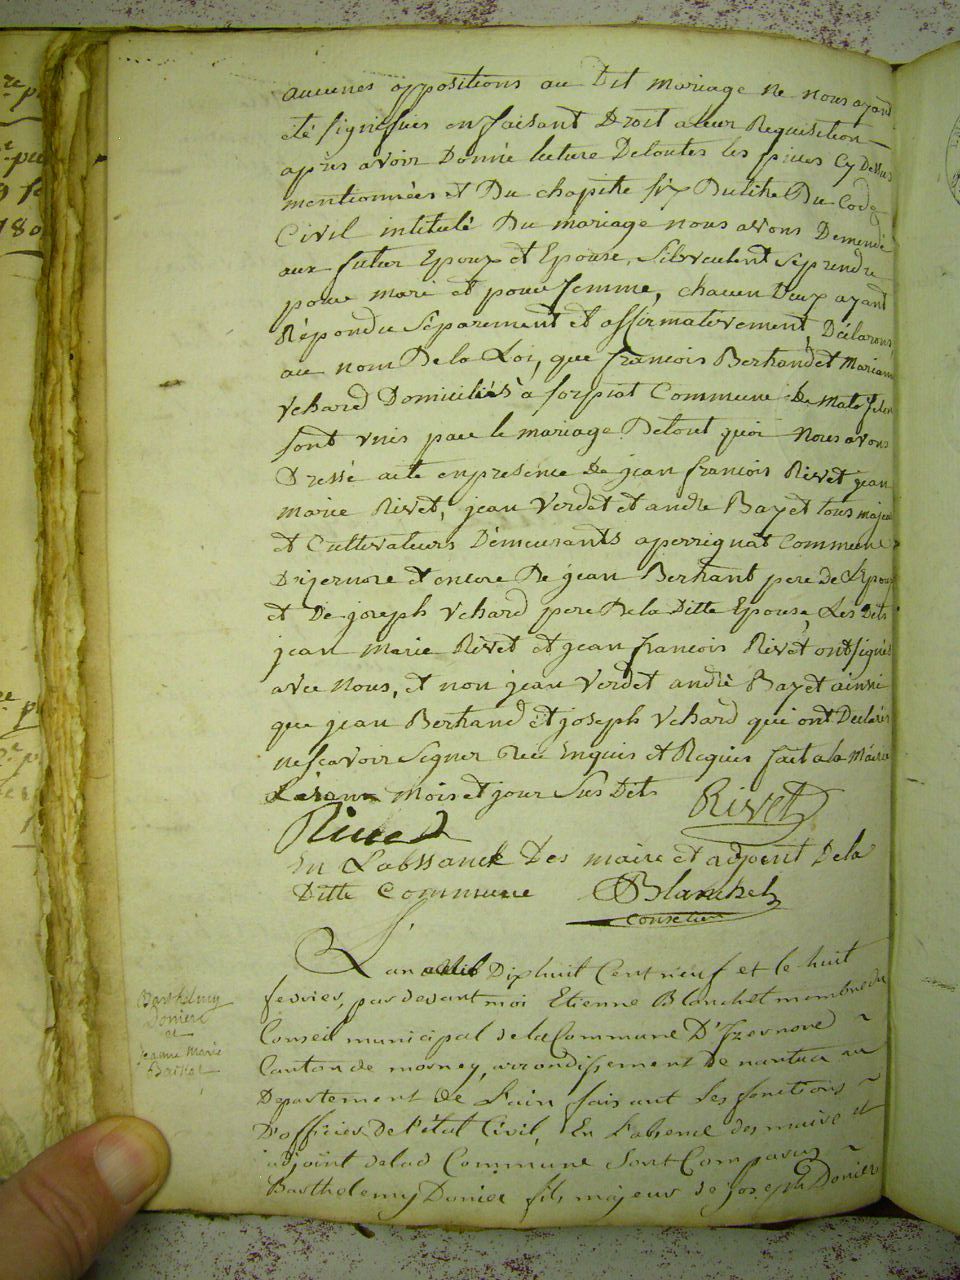 aucunes oppositions au Dit mariage ne nous ayant
été signifiées en faisant Droit a leur Requisition
après avoir Donné lecture De toutes les pieces Cy Dessus
mentionnées et Du chapitre six Du titre Du Code
Civil intitulé Du mariage nous avons Demendé
aux futur Epoux et Epouse, S'ils veulent Se prendre
pour mari et pour femme, chacun D'eux ayant
Répondu Séparement et affirmativement, Déclarons
au nom De la Loi, que francois Bertrand et Mariane
Vchard Domiciliés à sorpiat Commune de Matafelon
sont unis par le mariage. De tout quoi Nous avons
Dressé acte en presence de jean francois Rivet jean
marie Rivet, jean Verdet et andre Bayet tous majeurs
et Cultivateurs Démeurants a perrignat Commune
D'izernore et encore De jean Bertrant pere De L'Epoux
et De joseph Vchard pere De la Ditte Epouse, Les Dits
jean Marie Rivet et jean francois Rivet ont signés
avec nous, et non jean Verdet andré Bayet ainsi
que jean Bertrand et joseph Vchard qui ont Declarés
ne scavoir Signer Enquis et Requis fait a la Mairie
Les an Mois et jour Sus Dits Rivet
Rivet
En L'abssance Des maire et adjoent De la
Ditte Commune Blanchet
conseiller
L'an Dixhuit Cent neuf et le huit
fevrier, par devant moi Etienne Blanchet membre du
Conseil municipal de la Commune D'Izernore
Canton de mornay, arrondissement de nantua au
Departement de L'ain faisant Les fonctions
D'officier de l'état Civil, En L'absence des maire et
adjoint de lad Commune Sont Comparus
Barthelemy Donier fils majeur de joseph Donier
Barthelmy
Doniere
et
Jeanne Marie